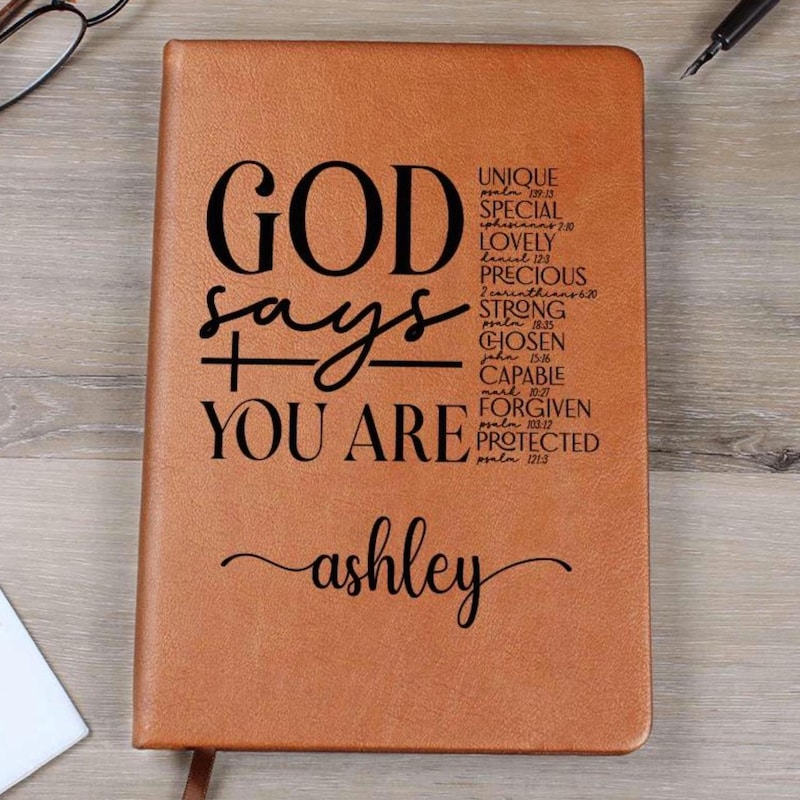 GOD
says
YOU ARE
UNIQUE
psalm 139:13
SPECIAL
ephesianns 2:10
LOVELY
daniel 12:3
PRECIOUS
2 corinthians 6:20
STRONG
psalm 18:35
CHOSEN
john 15:16
CAPABLE
mark 10:27
FORGIVEN
psalm 103:12
PROTECTED
psalm 121:3
ashley